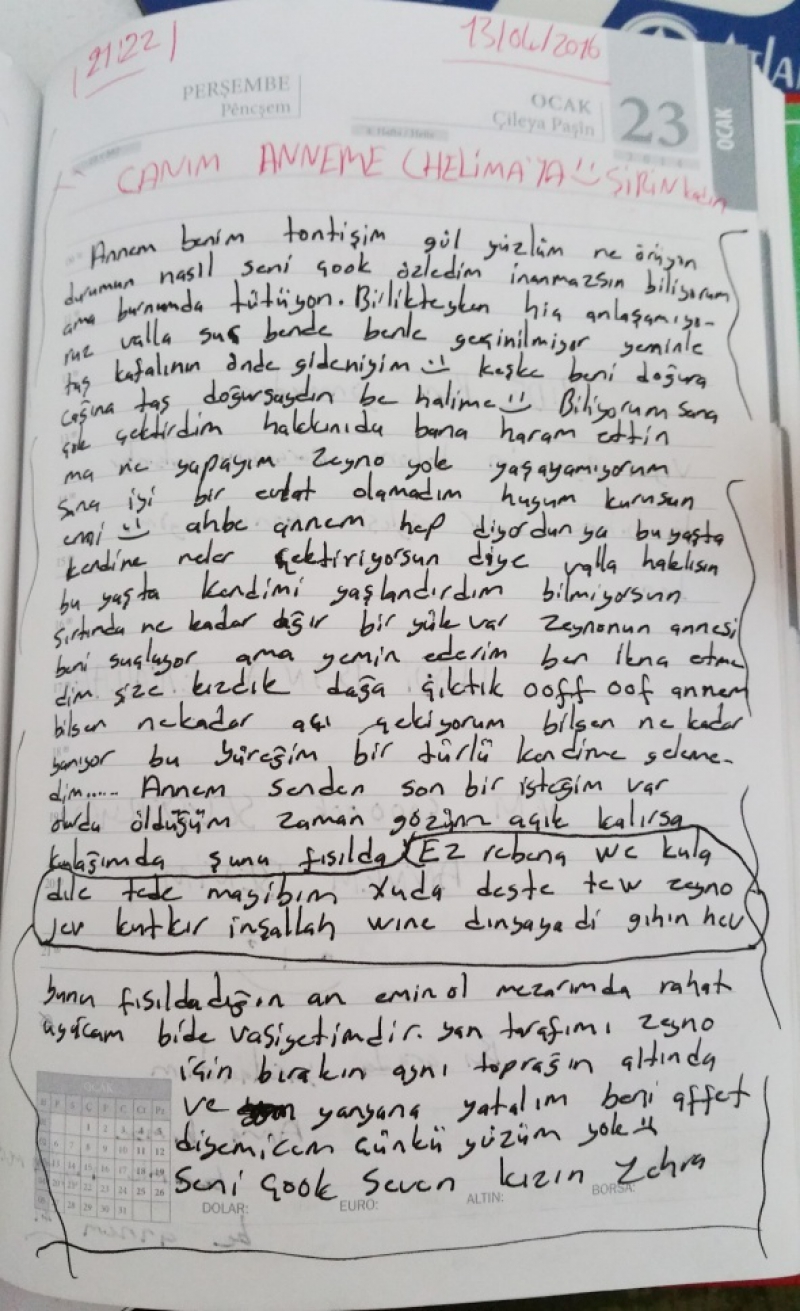 |21:22|
13/04/2016
PERŞEMBE
Pêncşem
OCAK
Çileya Paşîn
23
OCAK
CANIM ANNEME (HELİMA'YA :) ŞİRİN kadın
Annem benim tontişim gül yüzlüm ne
durumun nasıl seni çook özledim inanmazsın biliyorum
ama burnumda tütüyon. Birlikteyken hiç anlaşamıyo-
ruz valla suç bende benle geçinilmiyor yeminle
taş kafalının önde gideniyim :) keşke beni doğura
cağına taş doğursaydın be halime :) Biliyorum sana
çok çektirdim hakkınıda bana haram ettin
ma ne yapayım Zeyno yok yaşayamıyorum
sana iyi bir evlat olamadım huyum kurusun
emi :) ahbe annem hep diyordun ya bu yaşta
kendine neler çektiriyorsun diye valla haklısın
bu yaşta kendimi yaşlandırdım bilmiyorsun
sırtımda ne kadar ağır bir yük var zeynonun annesi
beni suçluyor ama yemin ederim ben ikna etme
dim size kızdık dağa çıktık ooff oof annem
bilsen nekadar acı çekiyorum bilsen ne kadar
yanıyor bu yüreğim bir türlü kendime geleme-
dim..... Annem senden son bir isteğim var
oda öldüğüm zaman gözüm açık kalırsa
kulağımda şunu fısılda (EZ rebena we kula
dile tede maşibım xuda deste tew zeyno
jev kutkır inşallah wine dınyaya di gıhın hev
bunu fısıldadığın an emin ol mezarımda rahat
uyucam bide vasiyetimdir. yan tarafımı zeyno
için bırakın aynı toprağın altında
ve yanyana yatalım beni affet
diyemicem çünkü yüzüm yok :(
Seni çook Seven kızın Zehra
DOLAR:
EURO:
ALTIN:
BORSA: